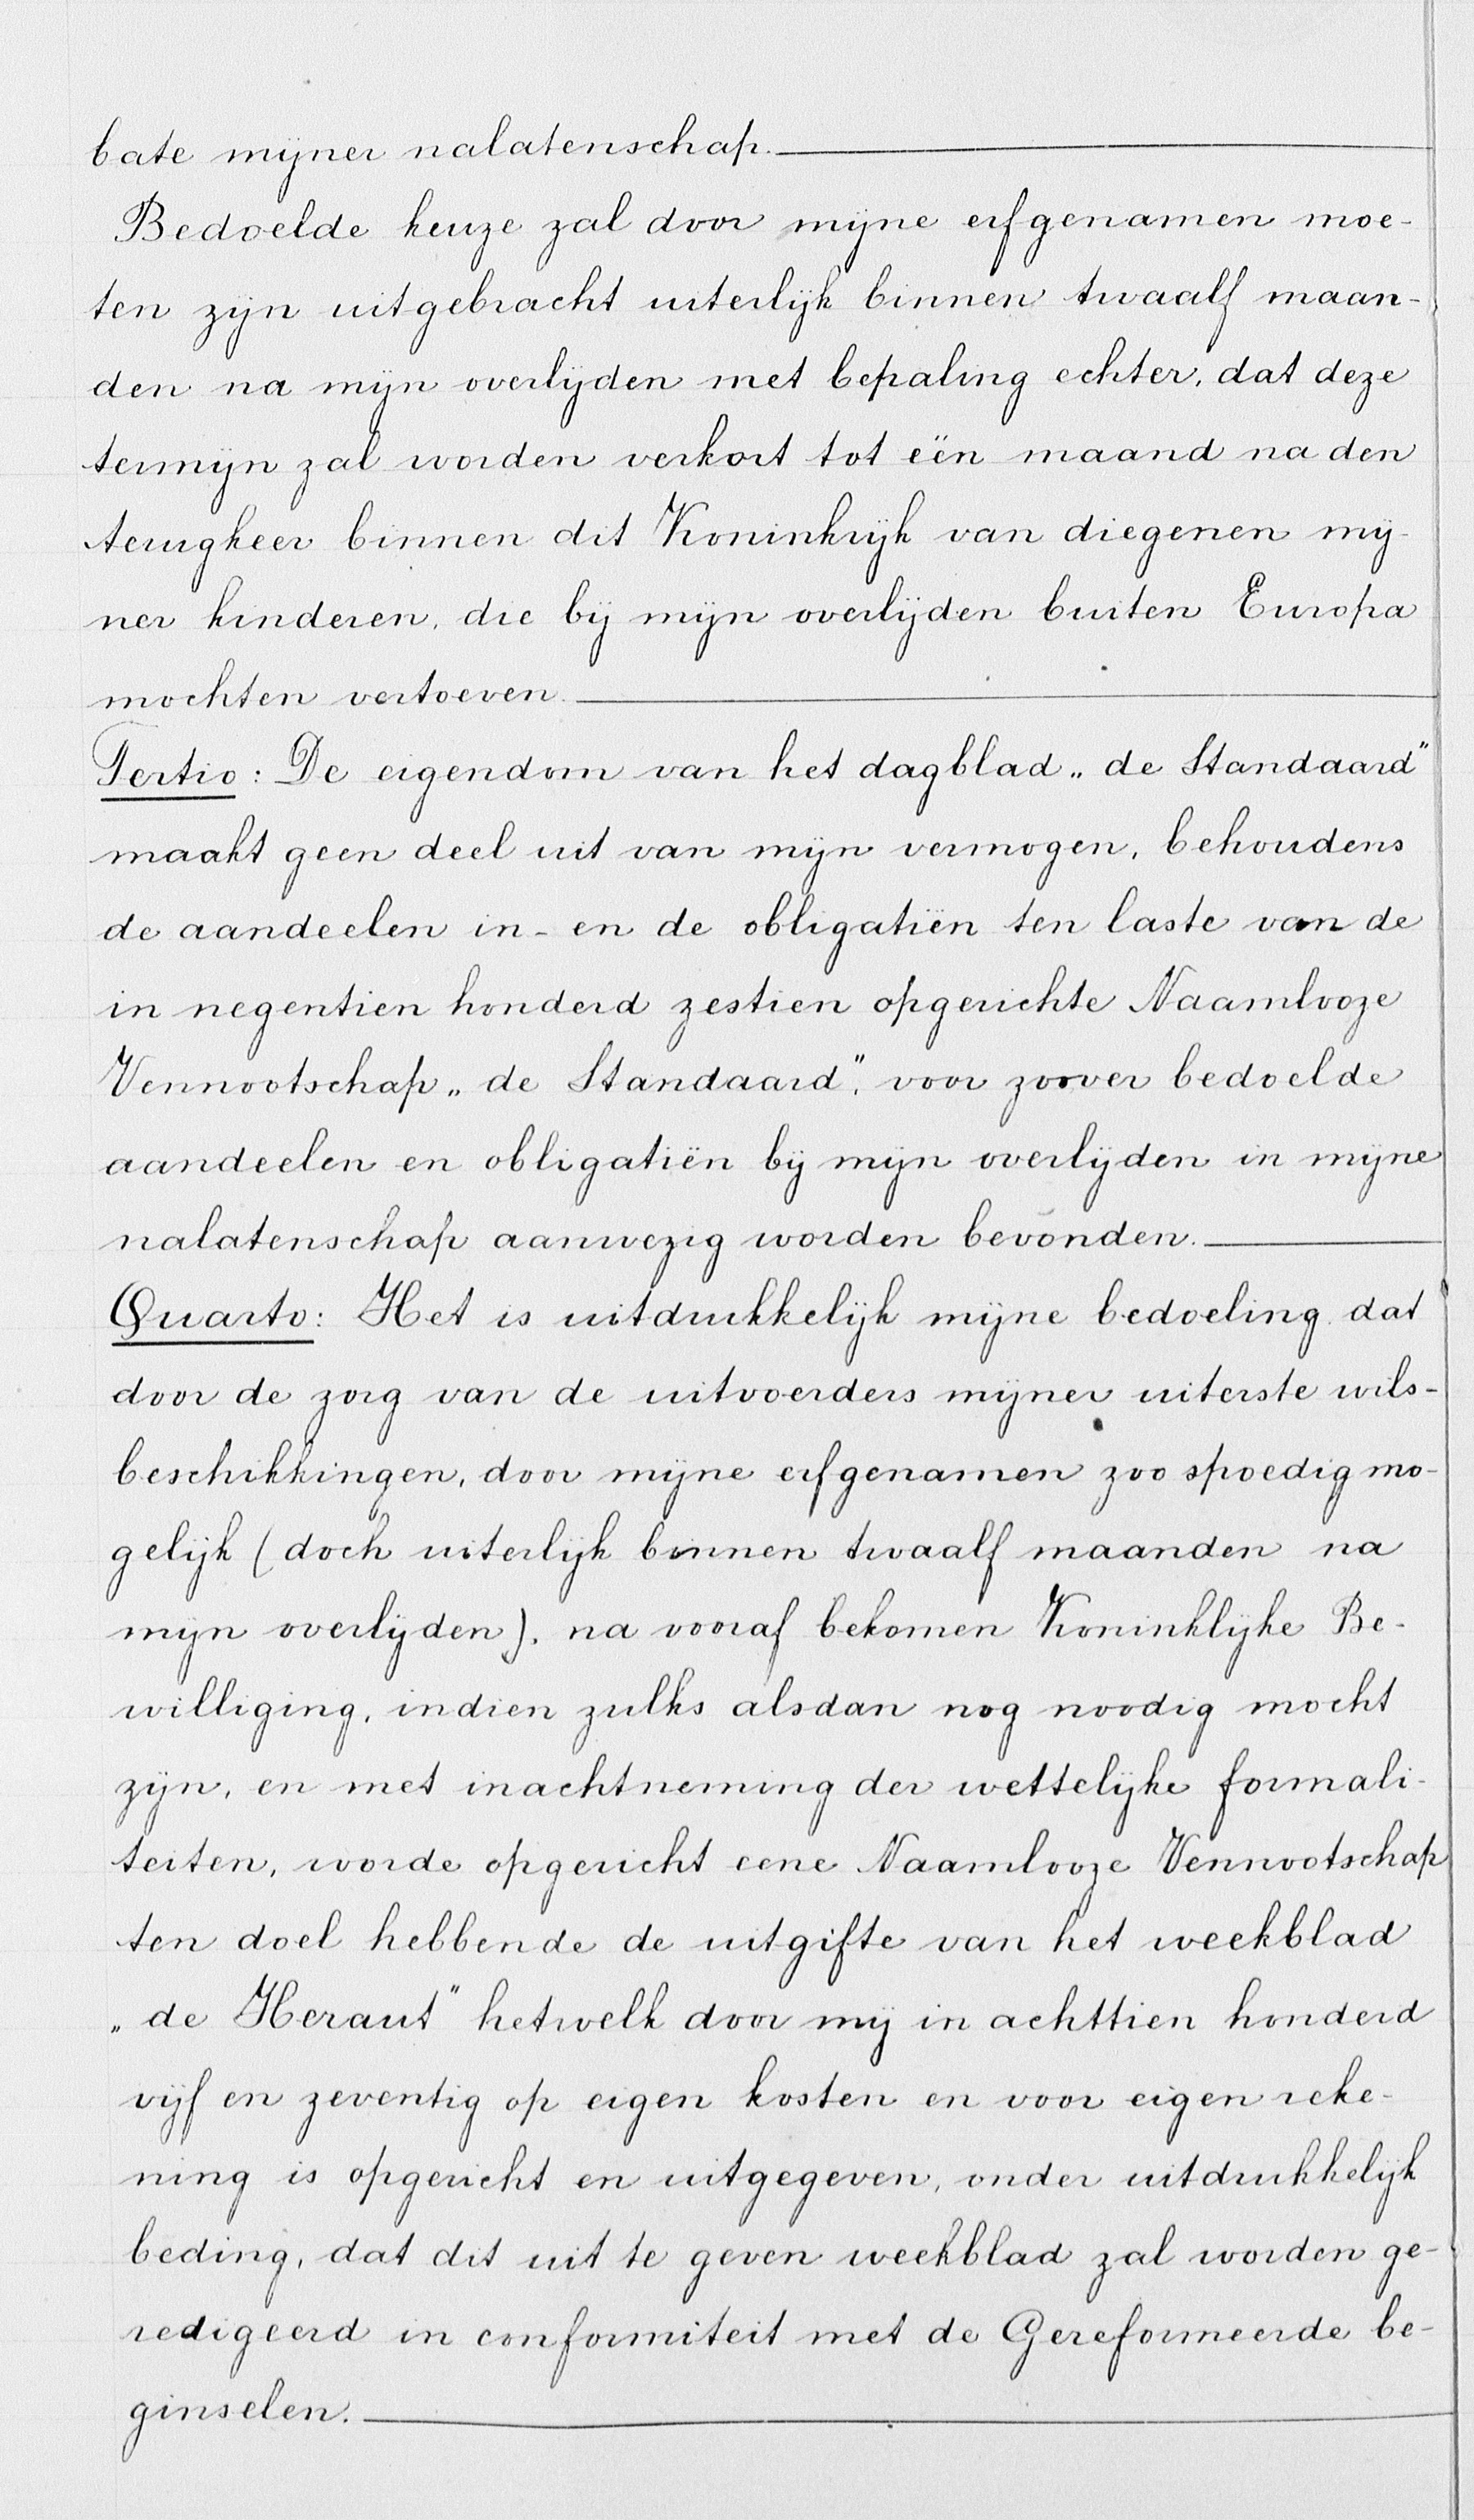 bate mijner nalatenschap.
Bedoelde keuze zal door mijne erfgenamen moe-
ten zijn uitgebracht uiterlijk binnen twaalf maan-
den na mijn overlijden met bepaling echter, dat deze
termijn zal worden verkort tot één maand na den
terugkeer binnen dit Koninkrijk van diegenen mij-
ner kinderen, die bij mijn overlijden buiten Europa
mochten vertoeven.
Tertio: De eigendom van het dagblad „de Standaard"
maakt geen deel uit van mijn vermogen, behoudens
de aandeelen in- en de obligatiën ten laste van de
in negentien honderd zestien opgerichte Naamlooze
Vennootschap „de Standaard", voor zoover bedoelde
aandeelen en obligatiën bij mijn overlijden in mijne
nalatenschap aanwezig worden bevonden.
Quarto: Het is uitdrukkelijk mijne bedoeling dat
door de zorg van de uitvoerders mijner uiterste wils-
beschikkingen, door mijne erfgenamen zoo spoedig mo-
gelijk (doch uiterlijk binnen twaalf maanden na
mijn overlijden), na vooraf bekomen Koninklijke Be-
williging, indien zulks alsdan nog noodig mocht
zijn, en met inachtneming der wettelijke formali-
teiten, worde opgericht eene Naamlooze Vennootschap
ten doel hebbende de uitgifte van het weekblad
„de Heraut" hetwelk door mij in achttien honderd
vijf en zeventig op eigen kosten en voor eigen reke-
ning is opgericht en uitgegeven, onder uitdrukkelijk
beding, dat dit uit te geven weekblad zal worden ge-
redigeerd in conformiteit met de Gereformeerde be-
ginselen.